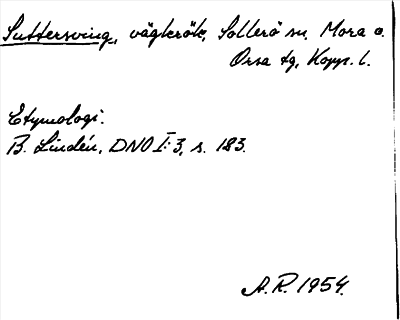 Suttersving, vägkrök, Sollerö sn, Mora o.
Orsa tg, Kopp. l.
Etymologi.
B. Lindén, DNO I:3, s. 183.
A.R. 1954.